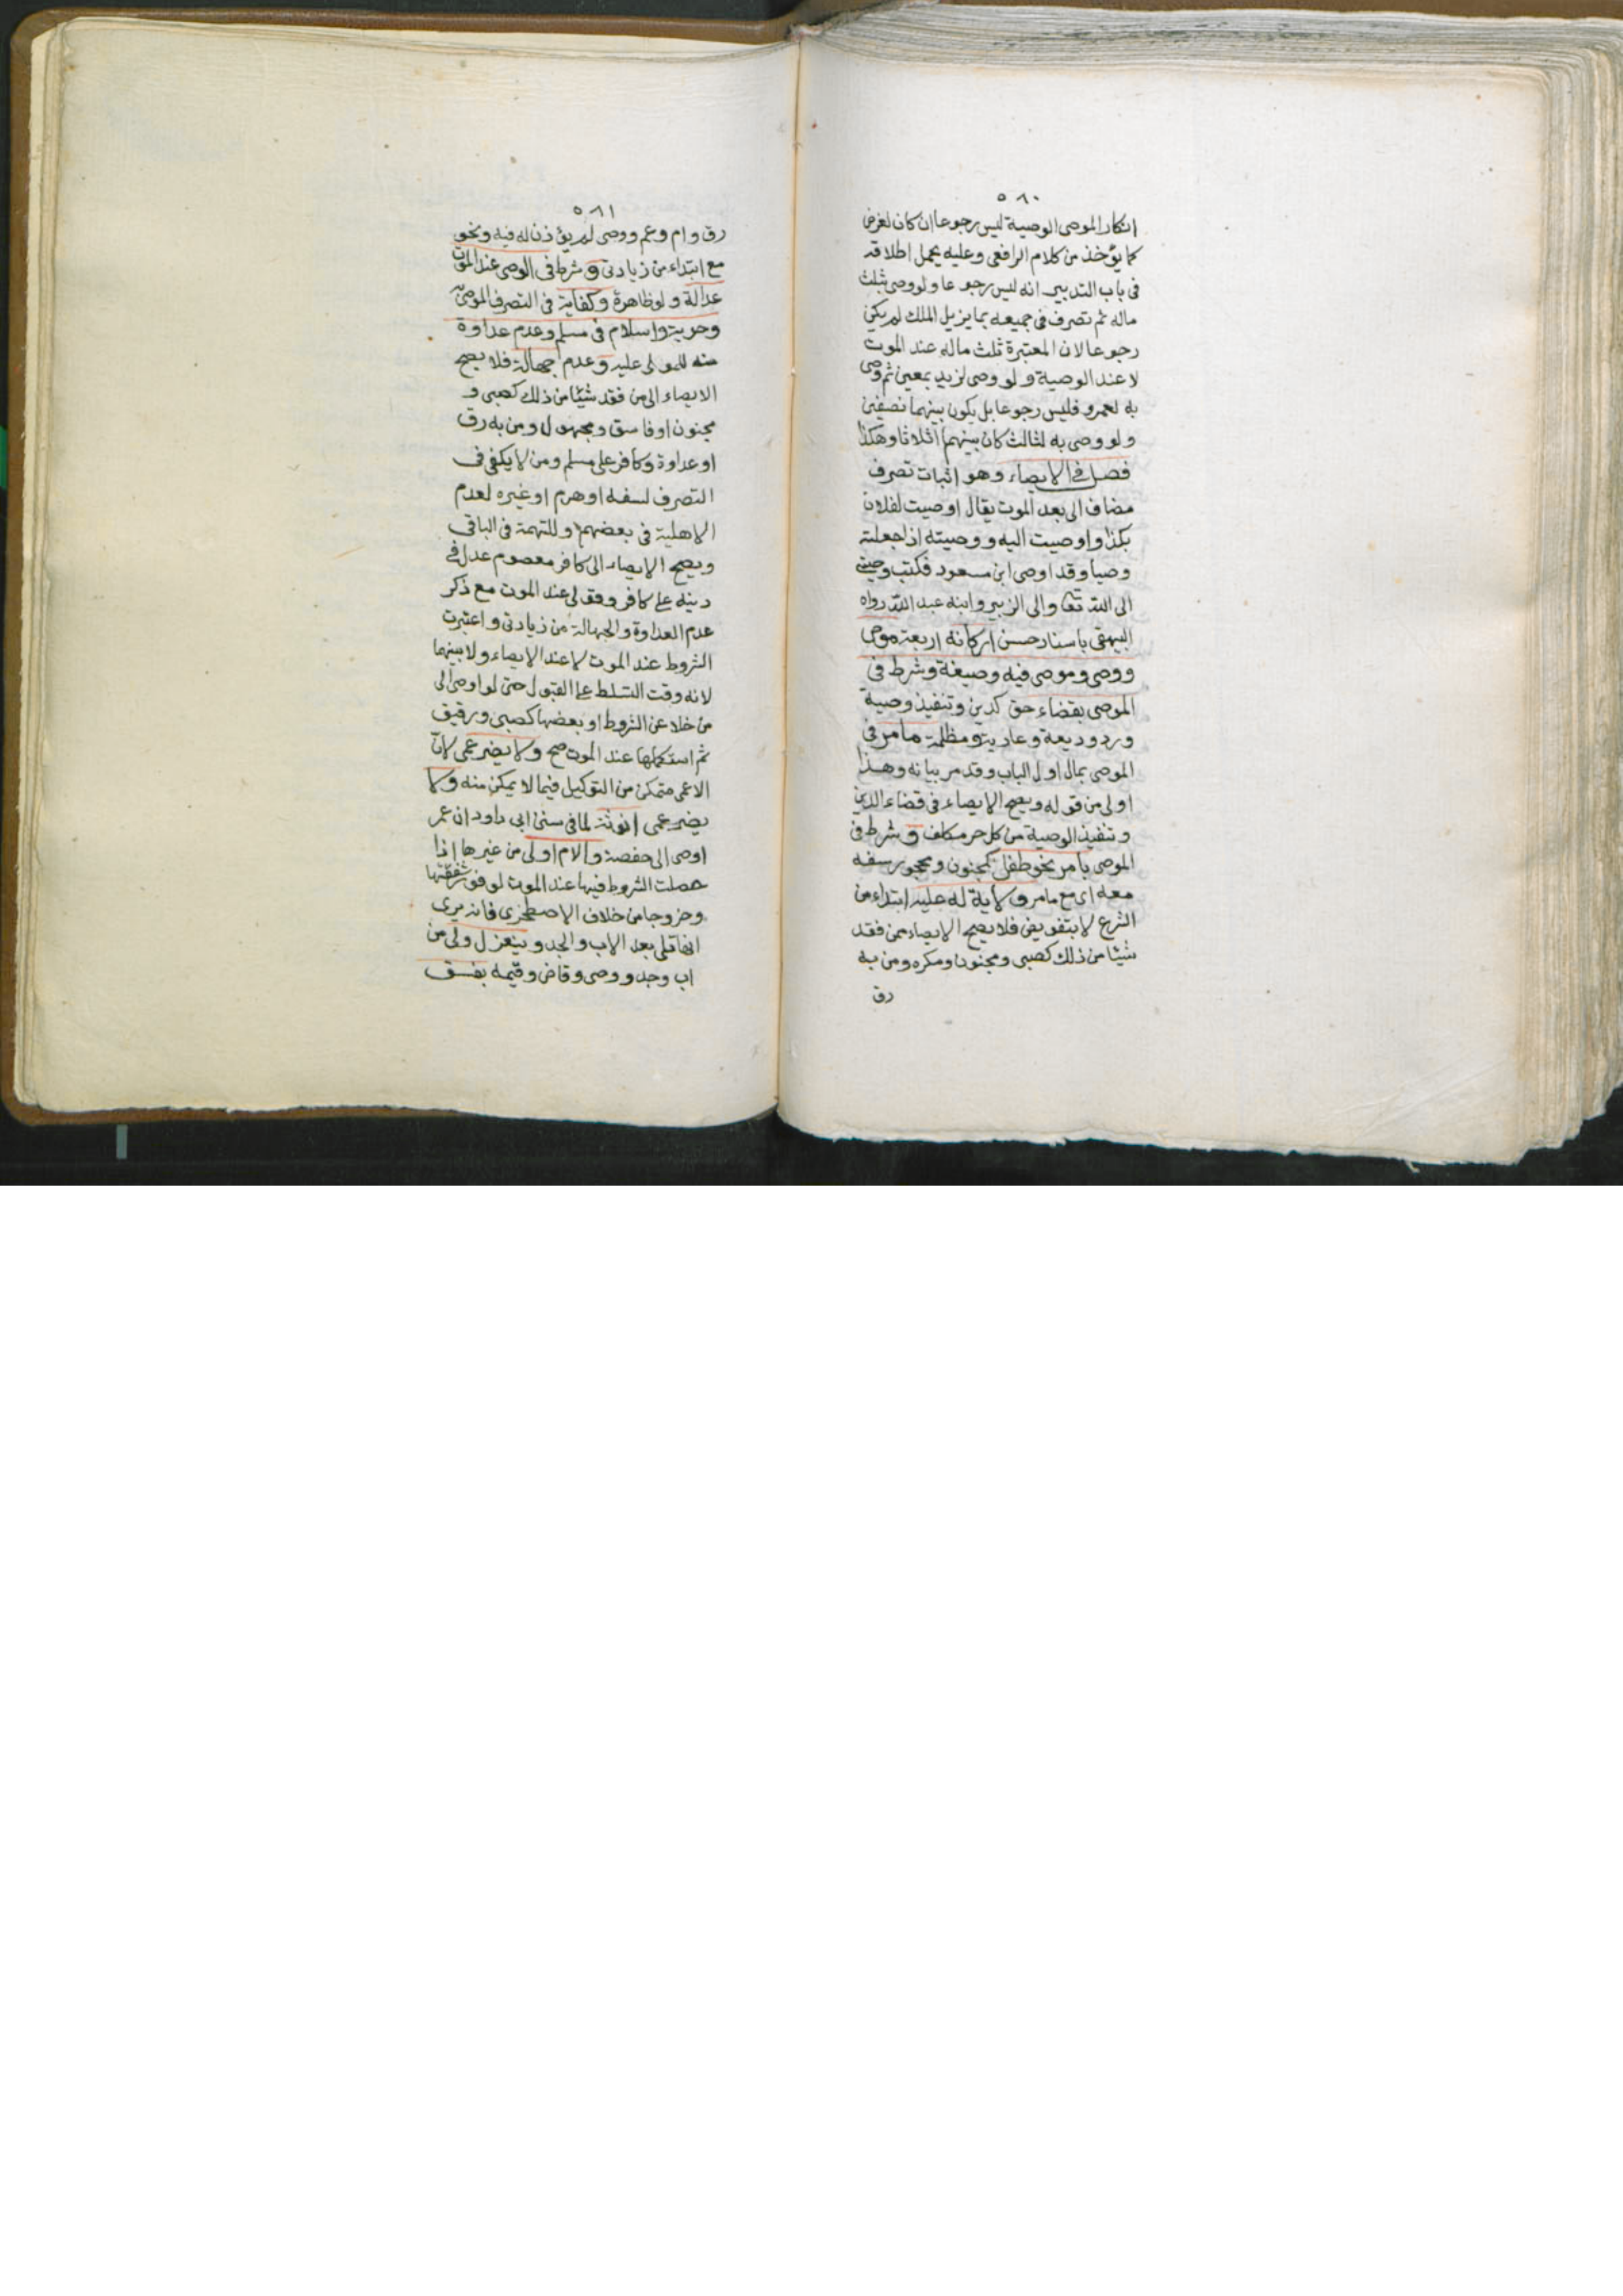 ٥٨٠
انكار الموصى الوصية ليس رجوعا ان كان لغرض
كما يؤخذ من كلام الرافعى وعليه يحمل اطلاقه
فى باب التدبير انه ليس رجوعا ولو وصى بثلث
ماله ثم تصرف فى جميعه بما يزيل الملك لم يكن
رجوعا لان المعتبرة ثلث ماله عند الموت
لا عند الوصية ولو وصى لزيد بمعين ثم وصى
به لعمرو فليس رجوعا بل يكون بينهما نصفين
ولو وصى به لثالث كان بينهم اثلاثا وهكذا
فصل فى الايصاء وهو اثبات تصرف
مضاف الى بعد الموت يقال اوصيت لفلان
بكذا واوصيت اليه ووصيته اذا جعلته
وصيا وقد اوصى ابن مسعود فكتب وصيتى
الى الله تعا والى الزبير وابنه عبد الله رواه
البيهقى باسناد حسن اركانه اربعة موص
ووصى وموصى فيه وصيغة وشرط فى
الموصى بقضاء حق كدين وتنفيذ وصية
ورد وديعة وعارية ومظلمة ما مر فى
الموصى بمال اول الباب وقد مر بيانه وهذا
اولى من قوله ويصح الايصاء فى قضاء الدين
وتنفيذ الوصية من كل حر مكلف و شرط فى
الموصى بامر نحو طفل كمجنون ومحجور سفه
معه اى مع ما مر ولاية له عليه ابتداء من
الشرع لا بتفويض فلا يصح الايصاء ممن فقد
شيئا من ذلك كصبى ومجنون ومكره ومن به
رق
٥٨١
رق وام وعم ووصى لم يؤذن له فيه ونحو
مع ابتداء من زيادتى و شرط فى الوصى عند الموت
عدالة ولو ظاهرة وكفاية فى التصرف الموصى به
وحرية واسلام فى مسلم وعدم عداوة
منه للمولى عليه وعدم جهالة فلا يصح
الايصاء الى من فقد شيئا من ذلك كصبى و
مجنون او فاسق ومجهول ومن به رق
او عداوة وكافر على مسلم ومن لا يكفى فى
التصرف لسفه او هرم او غيره لعدم
الاهلية فى بعضهم وللتهمة فى الباقى
ويصح الايصاء الى كافر معصوم عدل فى
دينه على كافر وقولى عند الموت مع ذكر
عدم العداوة والجهالة من زيادتى واعتبرت
الشروط عند الموت لا عند الايصاء ولا بينهما
لانه وقت التسلط على القبول حتى لو اوصى الى
من خلا عن الشروط او بعضها كصبى ورقيق
ثم استكملها عند الموت صح ولا يضر عمى لان
الاعمى متمكن من التوكيل فيما لا يمكن منه ولا
يضر عمى انوثة لما فى سنن ابى داود ان عمر
اوصى الى حفصة والام اولى من غيرها اذا
حصلت الشروط فيها عند الموت لوفور شفقتها
وخروجا من خلاف الاصطخرى فانه يرى
انها تلى بعد الاب والجد وينعزل ولى من
اب وجد ووصى وقاض وقيمه بفسق